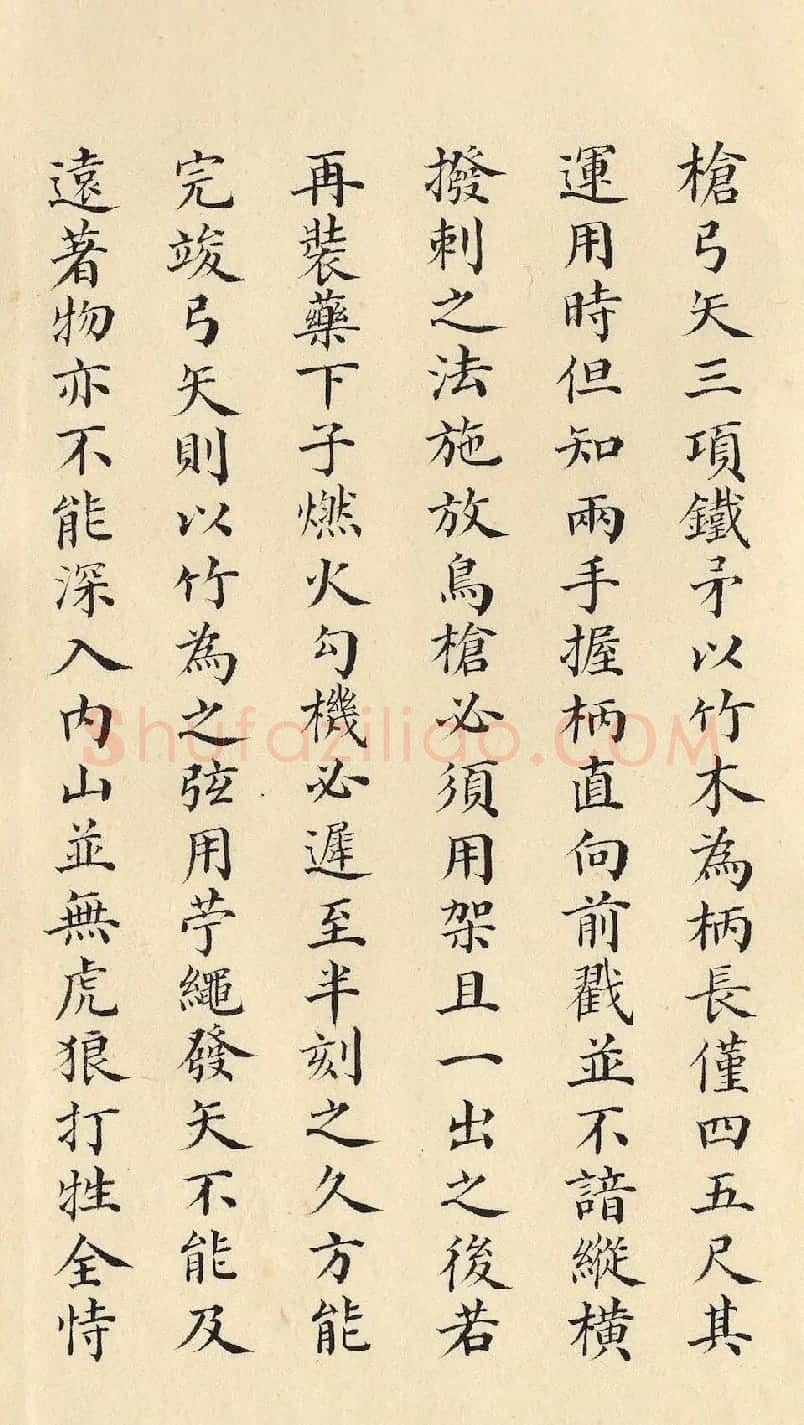 槍弓矢三項鐵矛以竹木為柄長僅四五尺其
運用時但知兩手握柄直向前戳並不諳縱橫
撥刺之法施放鳥槍必須用架且一出之後若
再裝藥下子燃火勾機必遲至半刻之久方能
完竣弓矢則以竹為之弦用苧繩發矢不能及
遠著物亦不能深入內山並無虎狼打牲全恃
Shufaziliao.COM